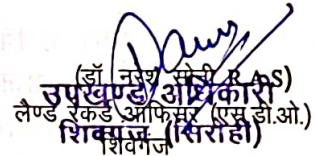 (डॉ. नरेश सोनी R.A.S)
उपखण्ड अधिकारी
लैण्ड रेकर्ड ऑफिसर (एस.डी.ओ.)
शिवगंज (सिरोही)
शिवगंज